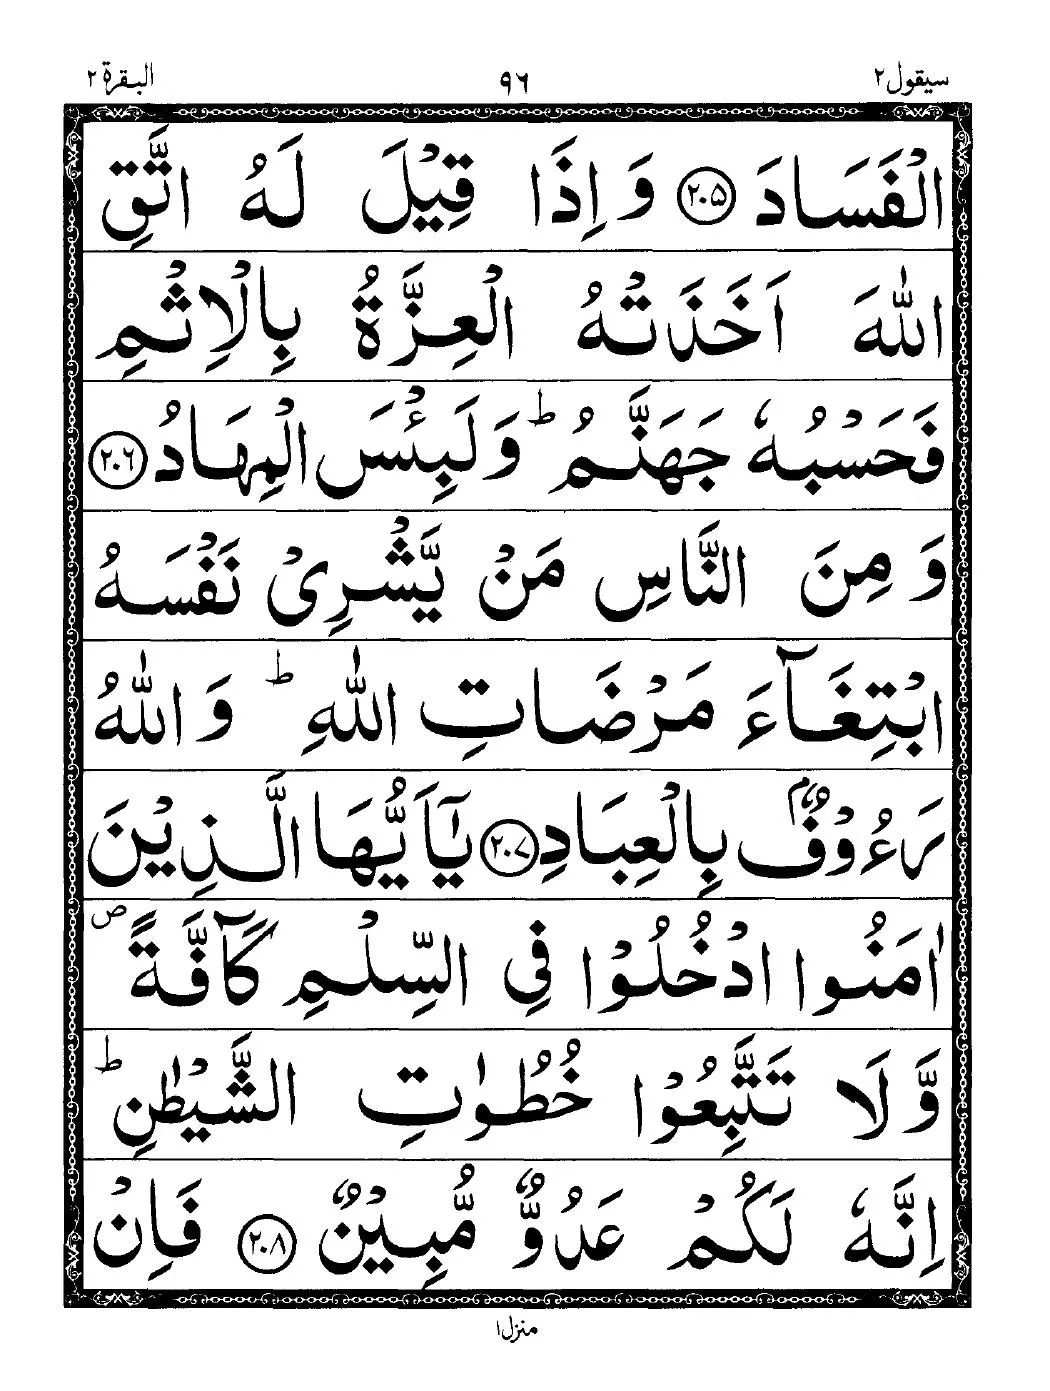 سيقول ٢ ٩٦ البقرة ٢
الْفَسَادَ ﴿٢٠۵﴾ وَ اِذَا قِيْلَ لَهُ اتَّقِ
اللّٰهَ اَخَذَتْهُ الْعِزَّةُ بِالْاِثْمِ
فَحَسْبُهٗ جَهَنَّمُ ؕ وَ لَبِئْسَ الْمِهَادُ ﴿٢٠٦﴾
وَ مِنَ النَّاسِ مَنْ يَّشْرِىْ نَفْسَهُ
ابْتِغَآءَ مَرْضَاتِ اللّٰهِ ؕ وَ اللّٰهُ
رَءُوْفٌۢ بِالْعِبَادِ ﴿٢٠٧﴾ يٰۤاَيُّهَا الَّذِيْنَ
اٰمَنُوا ادْخُلُوْا فِي السِّلْمِ كَآفَّةً ۪
وَّ لَا تَتَّبِعُوْا خُطُوٰتِ الشَّيْطٰنِ ؕ
اِنَّهٗ لَكُمْ عَدُوٌّ مُّبِيْنٌ ﴿٢٠٨﴾ فَاِنْ
منزل ١